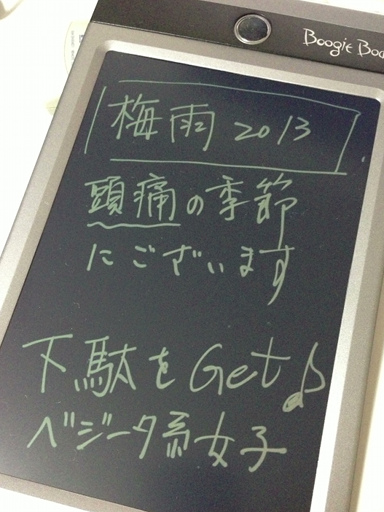 Boogie Boa
梅雨 2013
頭痛の季節
にございます
下駄をGet♪
ベジータ系女子